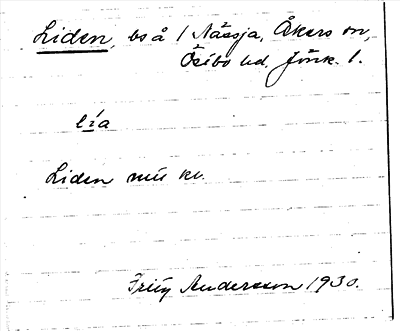 Liden, bs å 1 Nässja, Åkers sn,
Östbo hd, Jönk. l.
lia
Liden nu kv.
Fritz Andersson 1930.